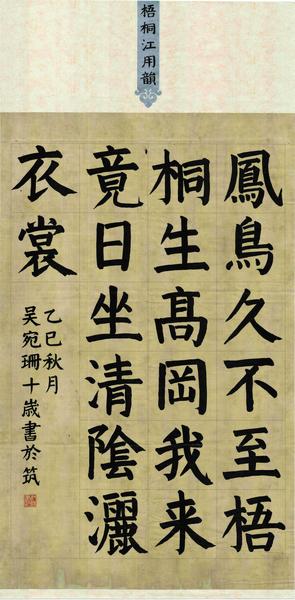 梧桐江用韻
鳳鳥久不至梧
桐生高岡我来
竟日坐清陰灑
衣裳
乙巳秋月
吴宛珊十歲書於筑